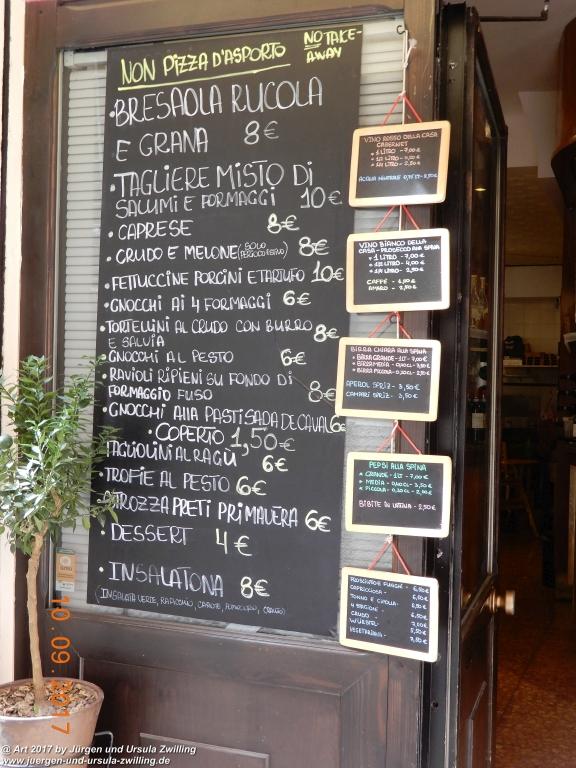 NON PIZZA D'ASPORTO
NO TAKE-
AWAY
• BRESAOLA RUCOLA
E GRANA 8€
• TAGLIERE MISTO DI
SALUMI E FORMAGGI 10€
• CAPRESE 8€
• CRUDO E MELONE (SOLO PERIODO ESTIVO) 8€
• FETTUCCINE PORCINI E TARTUFO 10€
• GNOCCHI AI 4 FORMAGGI 6€
TORTELLINI AL CRUDO CON BURRO
E SALVIA 8€
• GNOCCHI AL PESTO 6€
• RAVIOLI RIPIENI SU FONDO DI
FORMAGGIO FUSO 8€
• GNOCCHI ALLA PASTISADA DE CAVAL 6€
• COPERTO 1,50€
TAGLIOLINI AL RAGÙ 6€
• TROFIE AL PESTO 6€
STROZZAPRETI PRIMAVERA 6€
• DESSERT 4€
• INSALATONA 8€
VINO ROSSO DELLA CASA
CABERNET
• 1 LITRO - 7,00€
• 1/2 LITRO -
• 1/4 LITRO - 2,50€
ACQUA
VINO BIANCO DELLA
CASA - PROSECCO ALLA SPINA
• 1 LITRO - 7,00€
• 1/2 LITRO - 4,00€
• 1/4 LITRO - 2,50€
CAFFÈ - 1,50€
AMARO - 2,50€
BIRRA CHIARA ALLA SPINA
• BIRRA GRANDE - 1LT - 7,00€
• BIRRA MEDIA - 0,40CL - 3,50€
• BIRRA PICCOLA - 0,20CL - 2,50€
APEROL SPRIZ - 3,50€
CAMPARI SPRIZ - 3,50€
PEPSI ALLA SPINA
• GRANDE - 1LT - 7,00€
• MEDIA - 0,40CL - 3,50€
• PICCOLA - 0,20CL - 2,50€
BIBITE IN LATTINA - 2,50€
PROSCIUTTO E FUNGHI - 6,50€
CAPRICCIOSA -
TONNO E CIPOLLA -
4 STAGIONI -
CRUDO -
WÜRSTEL -
VEGETARIANA -
10.09.2017
@ Art 2017 by Jürgen und Ursula Zwilling
www.juergen-und-ursula-zwilling.de